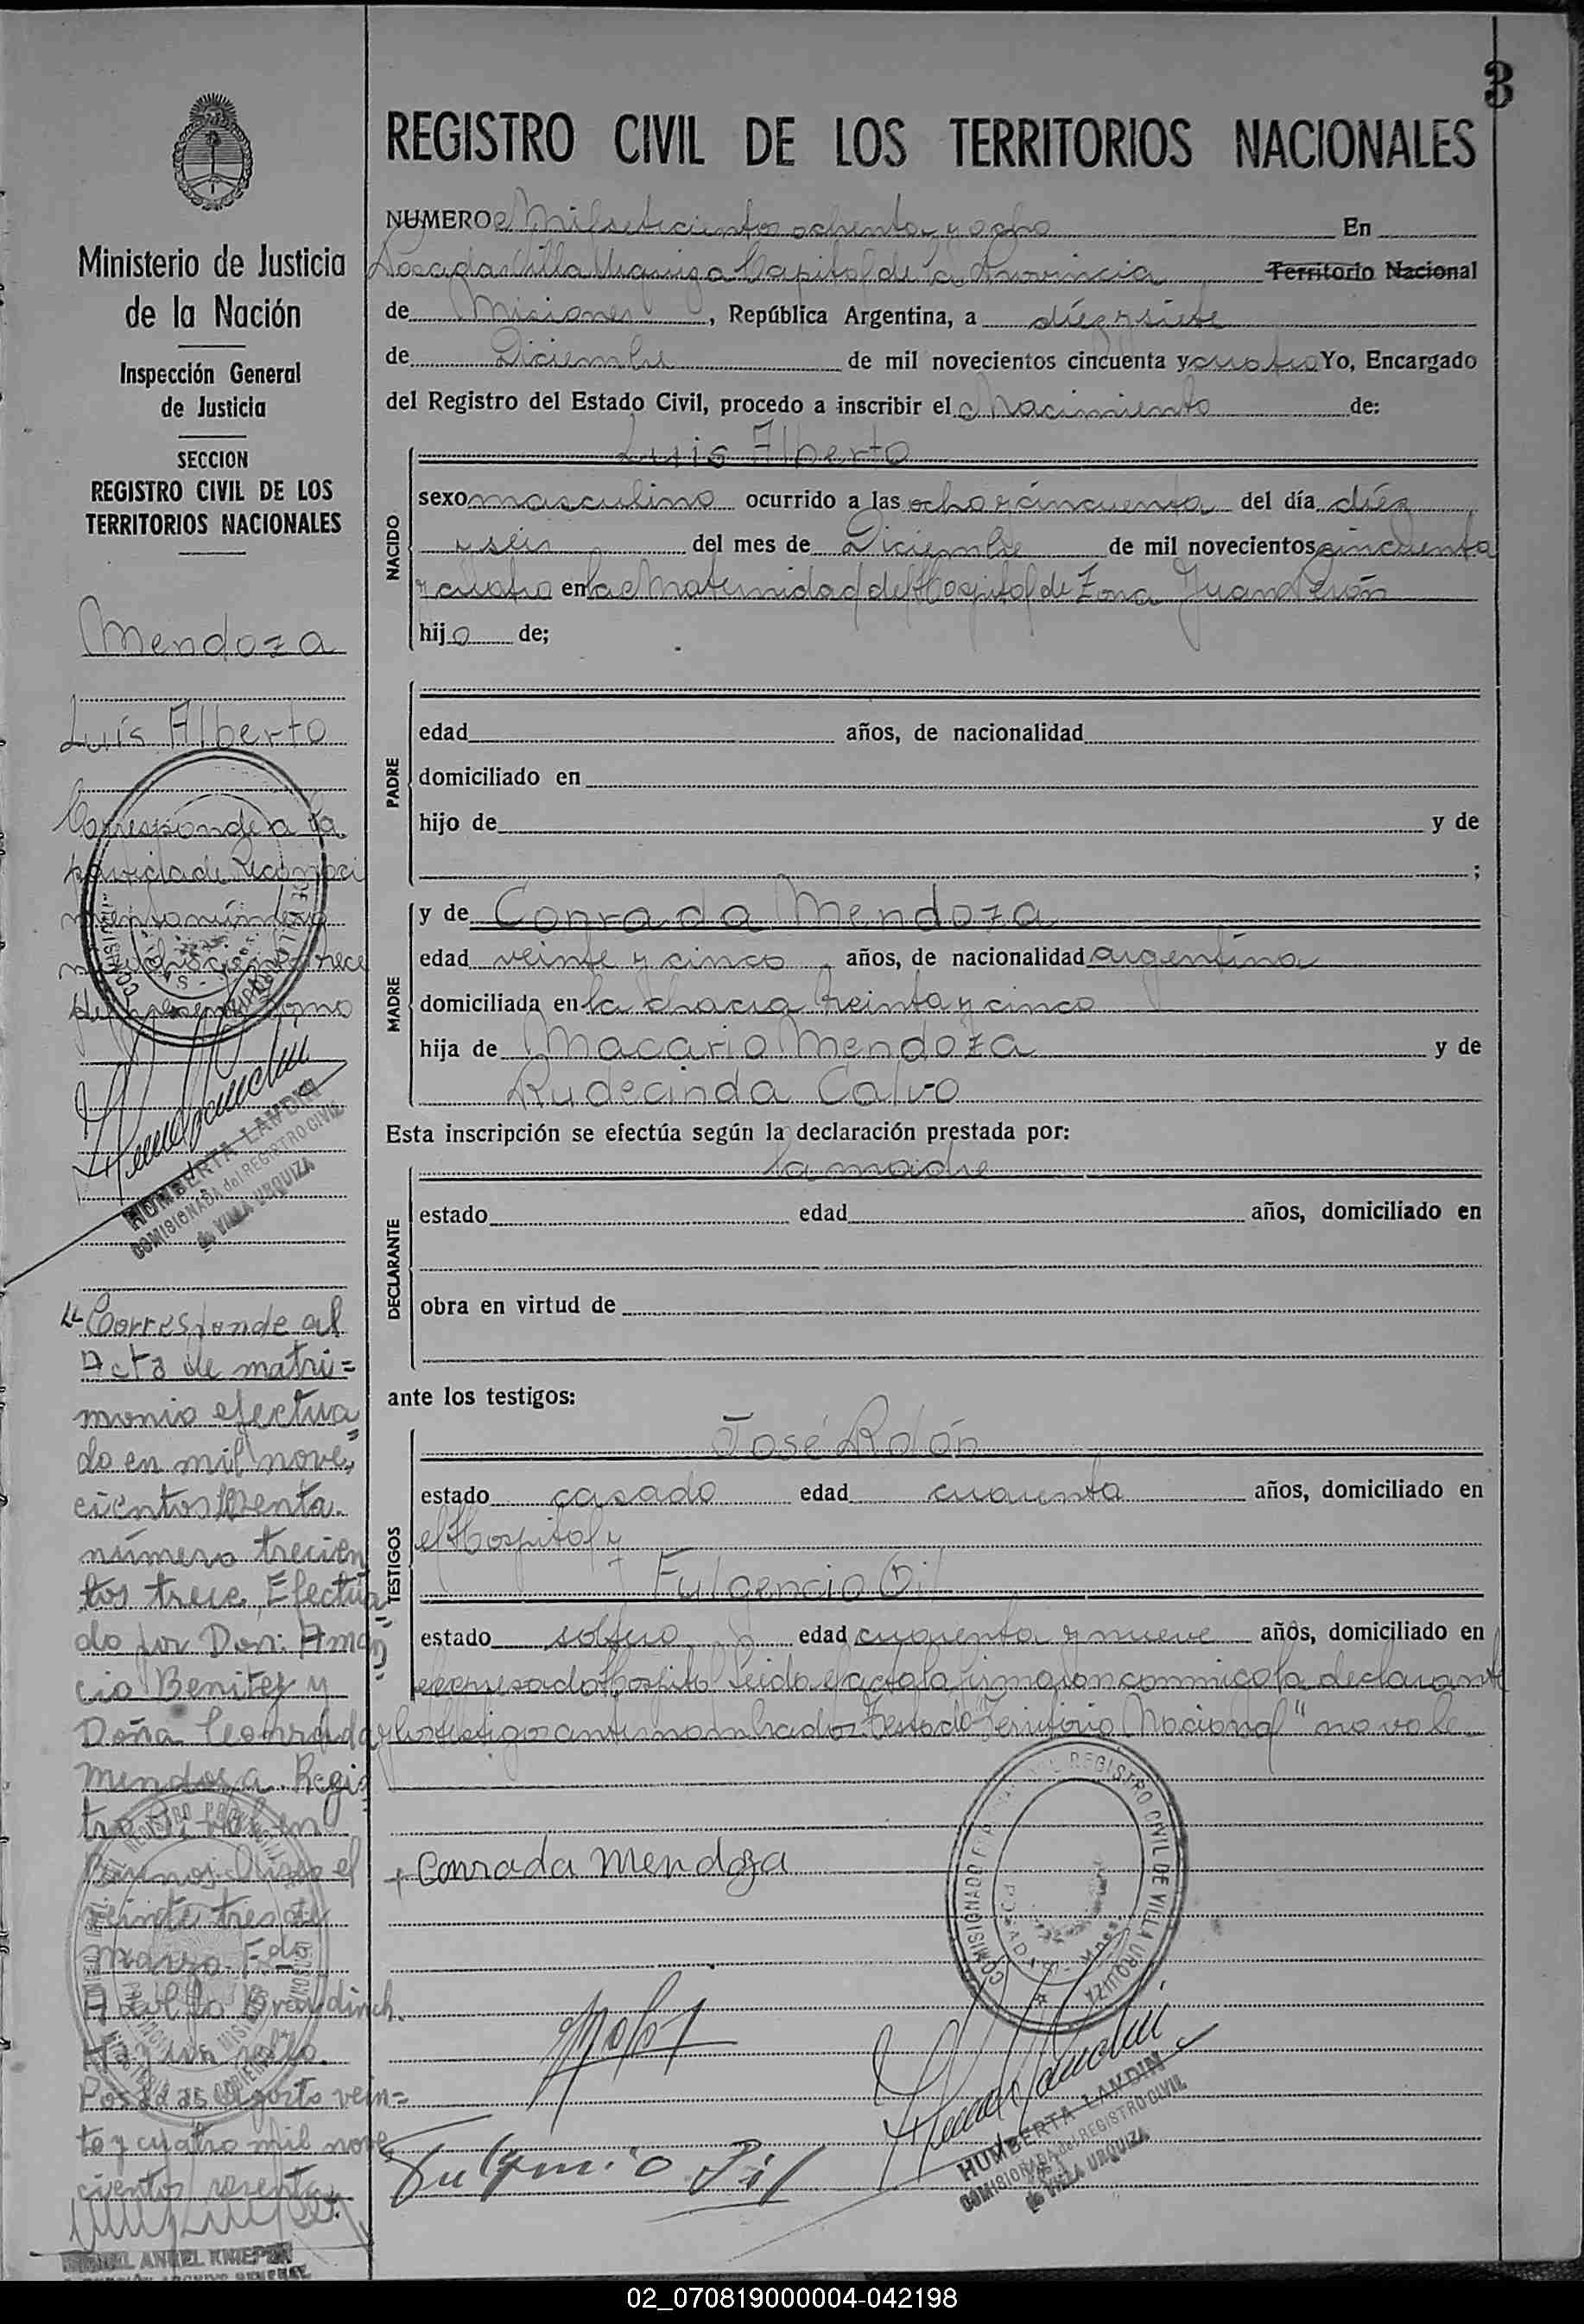 3
REGISTRO CIVIL DE LOS TERRITORIOS NACIONALES
Ministerio de Justicia
de la Nación
Inspección General
de Justicia
SECCION
REGISTRO CIVIL DE LOS
TERRITORIOS NACIONALES
Mendoza
Luís Alberto
Corresponde a la
partida de Reconoci
miento número
trece
del presente tomo
HUMBERTA LANDIN
COMISIONADA del REGISTRO CIVIL
de VILLA URQUIZA
"Corresponde al
Acta de matri=
monio efectua
do en mil nove,,
cientos
número trecien
tos trece. Efectua
do por Don: Aman
cio Benitez y
Doña Conrada
Mendoza. Regis
tro Civil en
Buenos Aires el
veinte tres de
marzo. Fdo
Hay un sello.
Posadas agosto vein=
te y cuatro mil nove
cientos sesenta
ANGEL KNIEPER
NUMERO Mil setecientos ochenta y ocho En
Posadas Villa Urquiza Capital de la Provincia Territorio Nacional
de Misiones, República Argentina, a diéz y siete
de Diciembre de mil novecientos cincuenta y cuatro Yo, Encargado
del Registro del Estado Civil, procedo a inscribir el Nacimiento de:
Luis Alberto
NACIDO
sexo masculino ocurrido a las ocho y cincuenta del día diéz
y seis del mes de Diciembre de mil novecientos cincuenta
y cuatro en la Maternidad del Hospital de Zona Juan Perón
hijo de;
PADRE
edad años, de nacionalidad
domiciliado en
hijo de y de
;
MADRE
y de Conrada Mendoza
edad veinte y cinco años, de nacionalidad argentina
domiciliada en la chacra treinta y cinco
hija de Macario Mendoza y de
Rudecinda Calvo
Esta inscripción se efectúa según la declaración prestada por:
la madre
DECLARANTE
estado edad años, domiciliado en
obra en virtud de
ante los testigos:
TESTIGOS
José Rolón
estado casado edad cuarenta años, domiciliado en
el Hospital y
Fulgencio Gil
estado soltero edad cuarenta y nueve años, domiciliado en
el expresado Hospital Leida el acta la firmaron conmigo la declarante
y los testigos antes nombrados Testado "Territorio Nacional" no vale
COMISIONADO REGISTRO CIVIL DE VILLA URQUIZA
Conrada Mendoza
Fulgencio Gil
HUMBERTA LANDIN
COMISIONADA del REGISTRO CIVIL
de VILLA URQUIZA
02_070819000004-042198